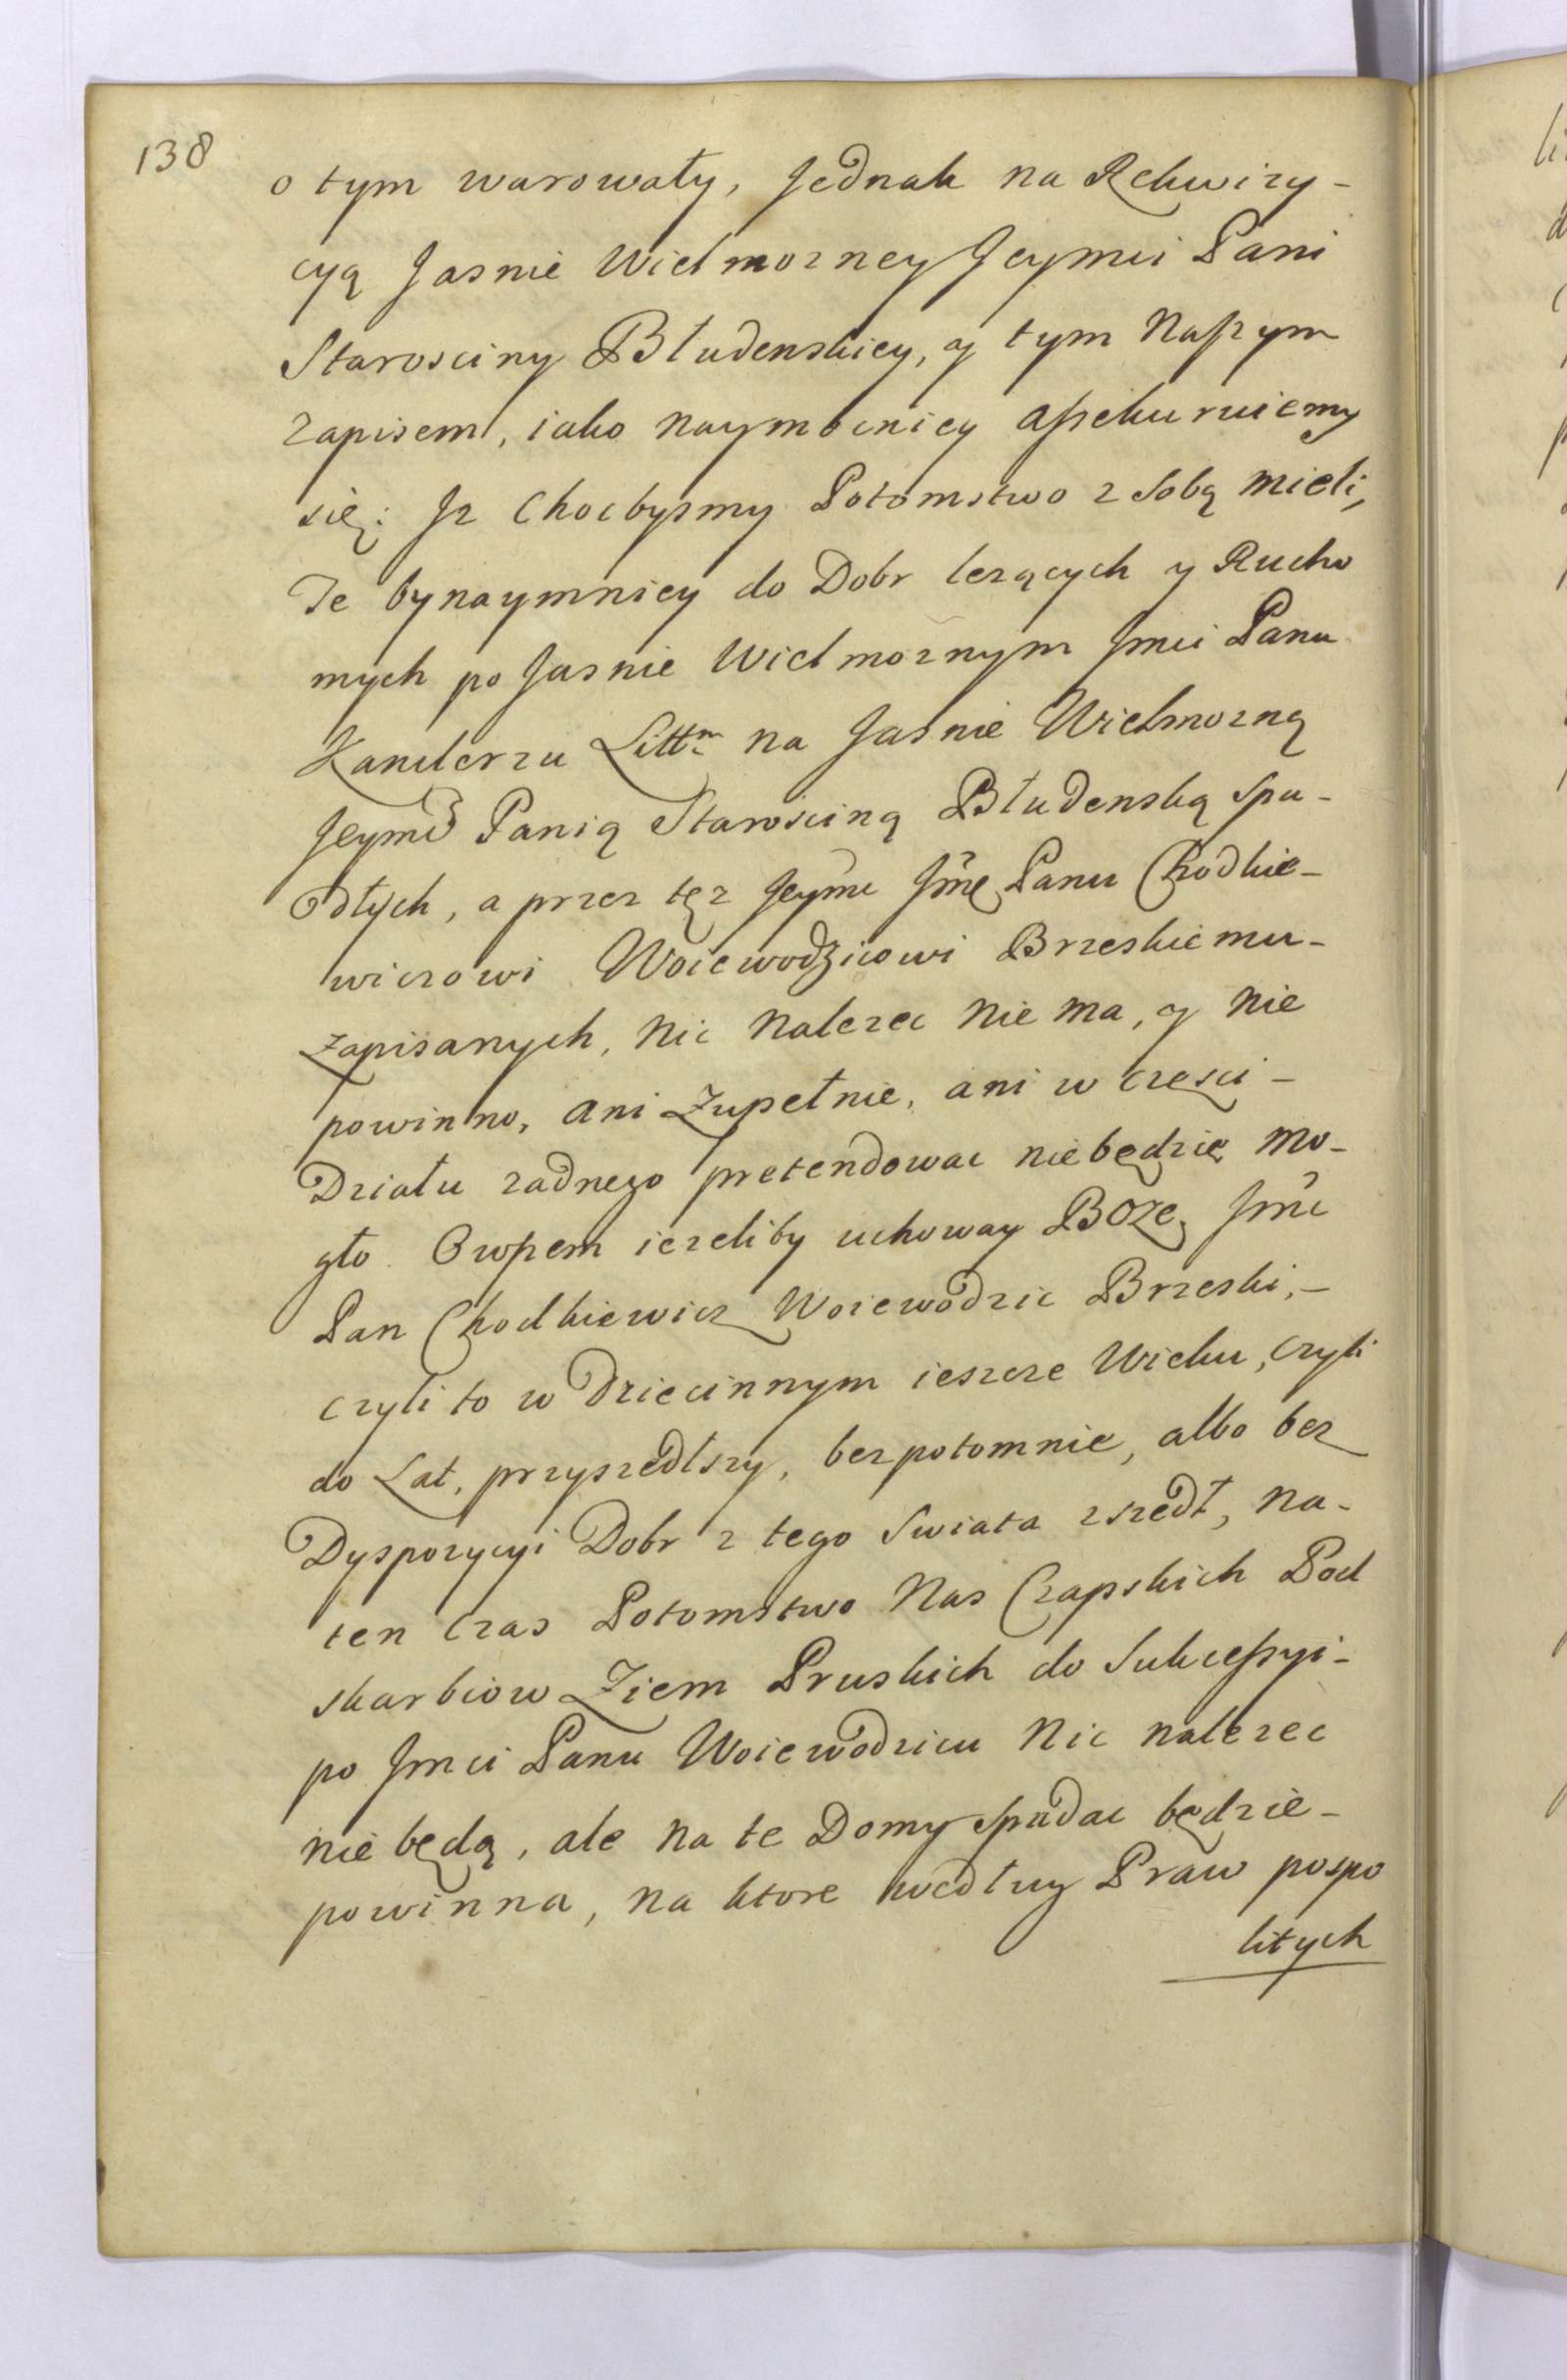 138
o tym warowały, Jednak na Rekwizy-
cyą Jasnie Wielmozney Jeymci Pani
Starosciny Błudenskiey, y tym Naszym
zapisem, iako naymocniey aszekuruiemy
się: Jz Chocbysmy Potomstwo z Sobą mieli,
Te bynaymniey do Dobr lezących y Rucho
mych po Jasnie Wielmoznym Jmci Panu
Kanclerzu Litt. na Jasnie Wielmozną
Jeymć Panią Starościną Błudenską Spa-
dłych, a przez tęz Jeymć Jmę Panu Chodkie-
wiczowi Woiewodzicowi Brzeskiemu-
zapisanych, Nic Nalezec Nie ma, y Nie
powinno, ani Zupełnie, ani w częsci-
Działu zadnego pretendowac niebędzie mo-
gło. Owszem iezeliby uchoway BOZE, Jmć
Pan Chodkiewicz Woiewodzic Brzeski,-
czyli to w Dziecinnym ieszcze Wieku, czyli
do Lat, przyszedłszy, bezpotomnie, albo bez
Dyspozycyi Dobr z tego Swiata zszedł, na-
ten czas Potomstwo Nas Czapskich Pod
skarbiow Ziem Pruskich do Sukcessyi-
po Jmci Panu Woiewodzicu Nic nalezec
nie będą, ale na te Domy Spadac będzie-
powinna, na ktore wedłuy Praw pospo
litych